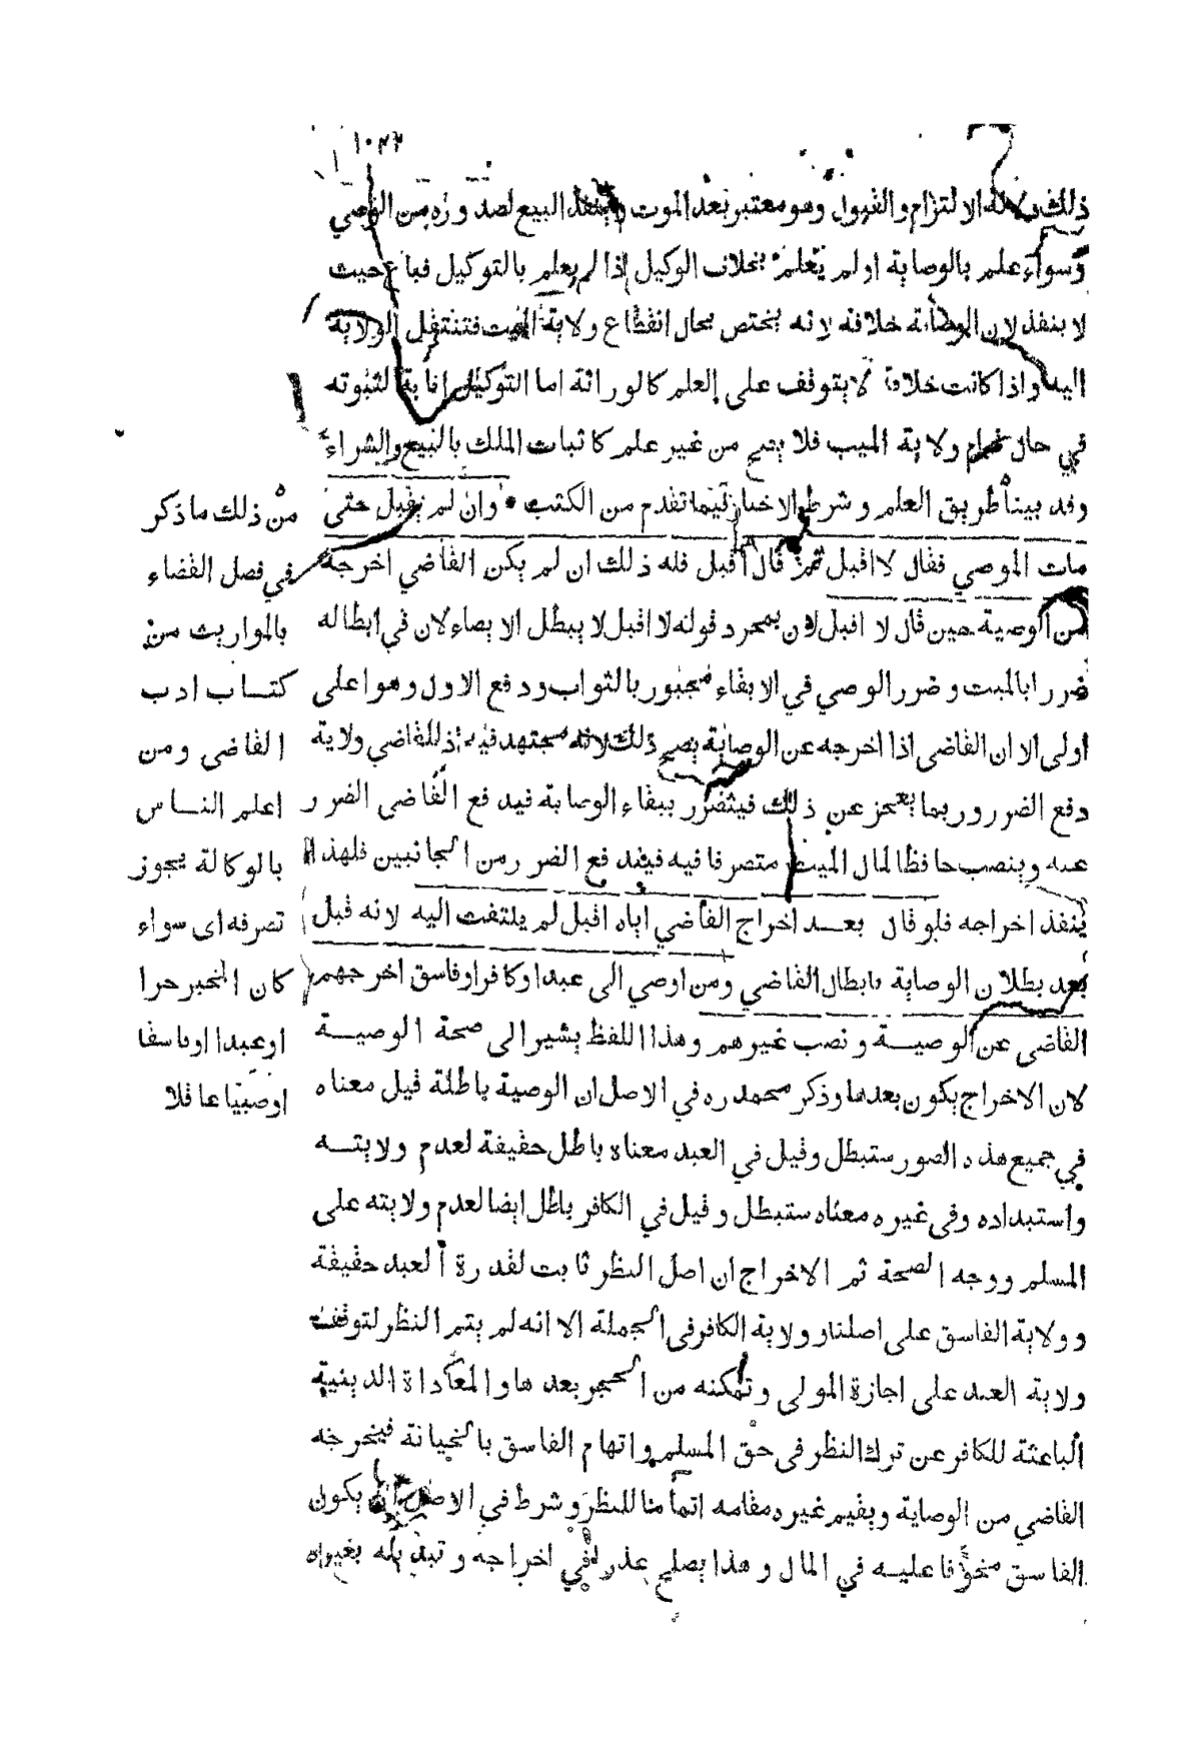 ١٠٢٢
ذلك دلالة الالتزام والقبول وهو معتبر بعد الموت وينفذ البيع لصدوره من الوصي
وسواء علم بالوصاية او لم يعلم بخلاف الوكيل اذا لم يعلم بالتوكيل فباع حيث
لا ينفذ لان الوصاية خلافة لانه يختص بحال انقطاع ولاية الميت فتنتقل الولاية
اليه واذا كانت خلافة لا يتوقف على العلم كالوراثة اما التوكيل انابة لثبوته
في حال قيام ولاية المنيب فلا يصح من غير علم كاثبات الملك بالبيع والشراء
وقد بينا طريق العلم وشرط الاخبار فيما تقدم من الكتب وان لم يقبل حتى
مات الموصي فقال لا اقبل ثم قال اقبل فله ذلك ان لم يكن القاضي اخرجه
من الوصية حين قال لا اقبل لان بمجرد قوله لا اقبل لا يبطل الايصاء لان في ابطاله
ضررا بالميت وضرر الوصي في الابقاء مجبور بالثواب ودفع الاول وهو اعلى
اولى الا ان القاضى اذا اخرجه عن الوصاية يصح ذلك لانه مجتهد فيه اذ للقاضي ولاية
دفع الضرر وربما يعجز عن ذلك فيتضرر ببقاء الوصاية فيدفع القاضى الضرر
عنه وينصب حافظا لمال الميت متصرفا فيه فيندفع الضرر من الجانبين فلهذا
ينفذ اخراجه فلو قال بعد اخراج القاضي اياه اقبل لم يلتفت اليه لانه قبل
بعد بطلان الوصاية بابطال القاضي ومن اوصي الى عبد او كافر او فاسق اخرجهم
القاضى عن الوصية ونصب غيرهم وهذا اللفظ يشير الى صحة الوصية
لان الاخراج يكون بعدها وذكر محمد ره في الاصل ان الوصية باطلة قيل معناه
في جميع هذه الصور ستبطل وقيل في العبد معناه باطل حقيقة لعدم ولايته
واستبداده وفى غيره معناه ستبطل وقيل في الكافر باطل ايضا لعدم ولايته على
المسلم ووجه الصحة ثم الاخراج ان اصل النظر ثابت لقدرة العبد حقيقة
وولاية الفاسق على اصلنا وولاية الكافر فى الجملة الا انه لم يتم النظر لتوقف
ولاية العبد على اجازة المولى وتمكنه من الحجر بعدها والمعاداة الدينية
الباعثة للكافر عن ترك النظر فى حق المسلم واتهام الفاسق بالخيانة فيخرجه
القاضي من الوصاية ويقيم غيره مقامه اتماما للنظر وشرط في الاصل ان يكون
الفاسق مخوفا عليه في المال وهذا يصلح عذرا في اخراجه وتبديله بغيره
من ذلك ما ذكر
في فصل القضاء
بالمواريث من
كتاب ادب
القاضى ومن
اعلم الناس
بالوكالة يجوز
تصرفه اى سواء
كان المخبر حرا
او عبدا او فاسقا
او صبيا عاقلا